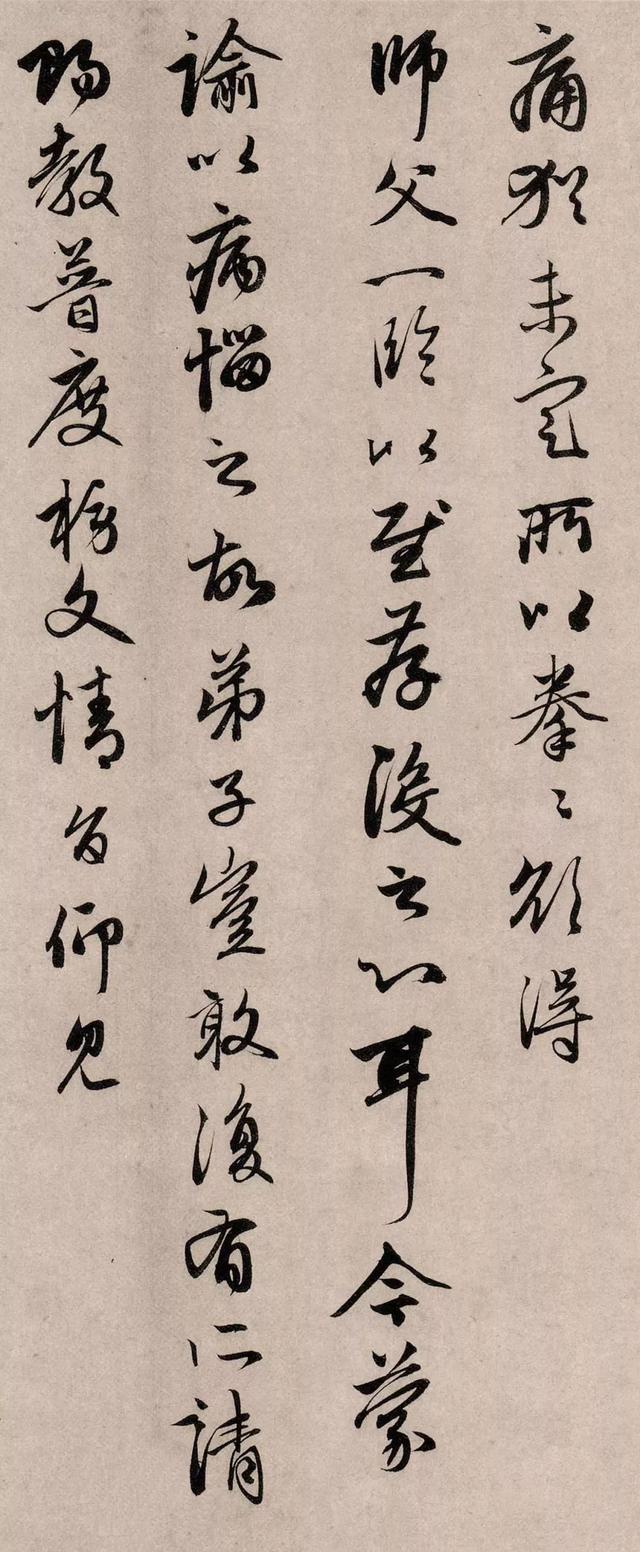 痛猶未定所以拳〻欲得
師父一臨以慰存没之心耳今蒙
諭以病惱之故弟子豈敢復有所請
賜教普度榜文情旨仰見